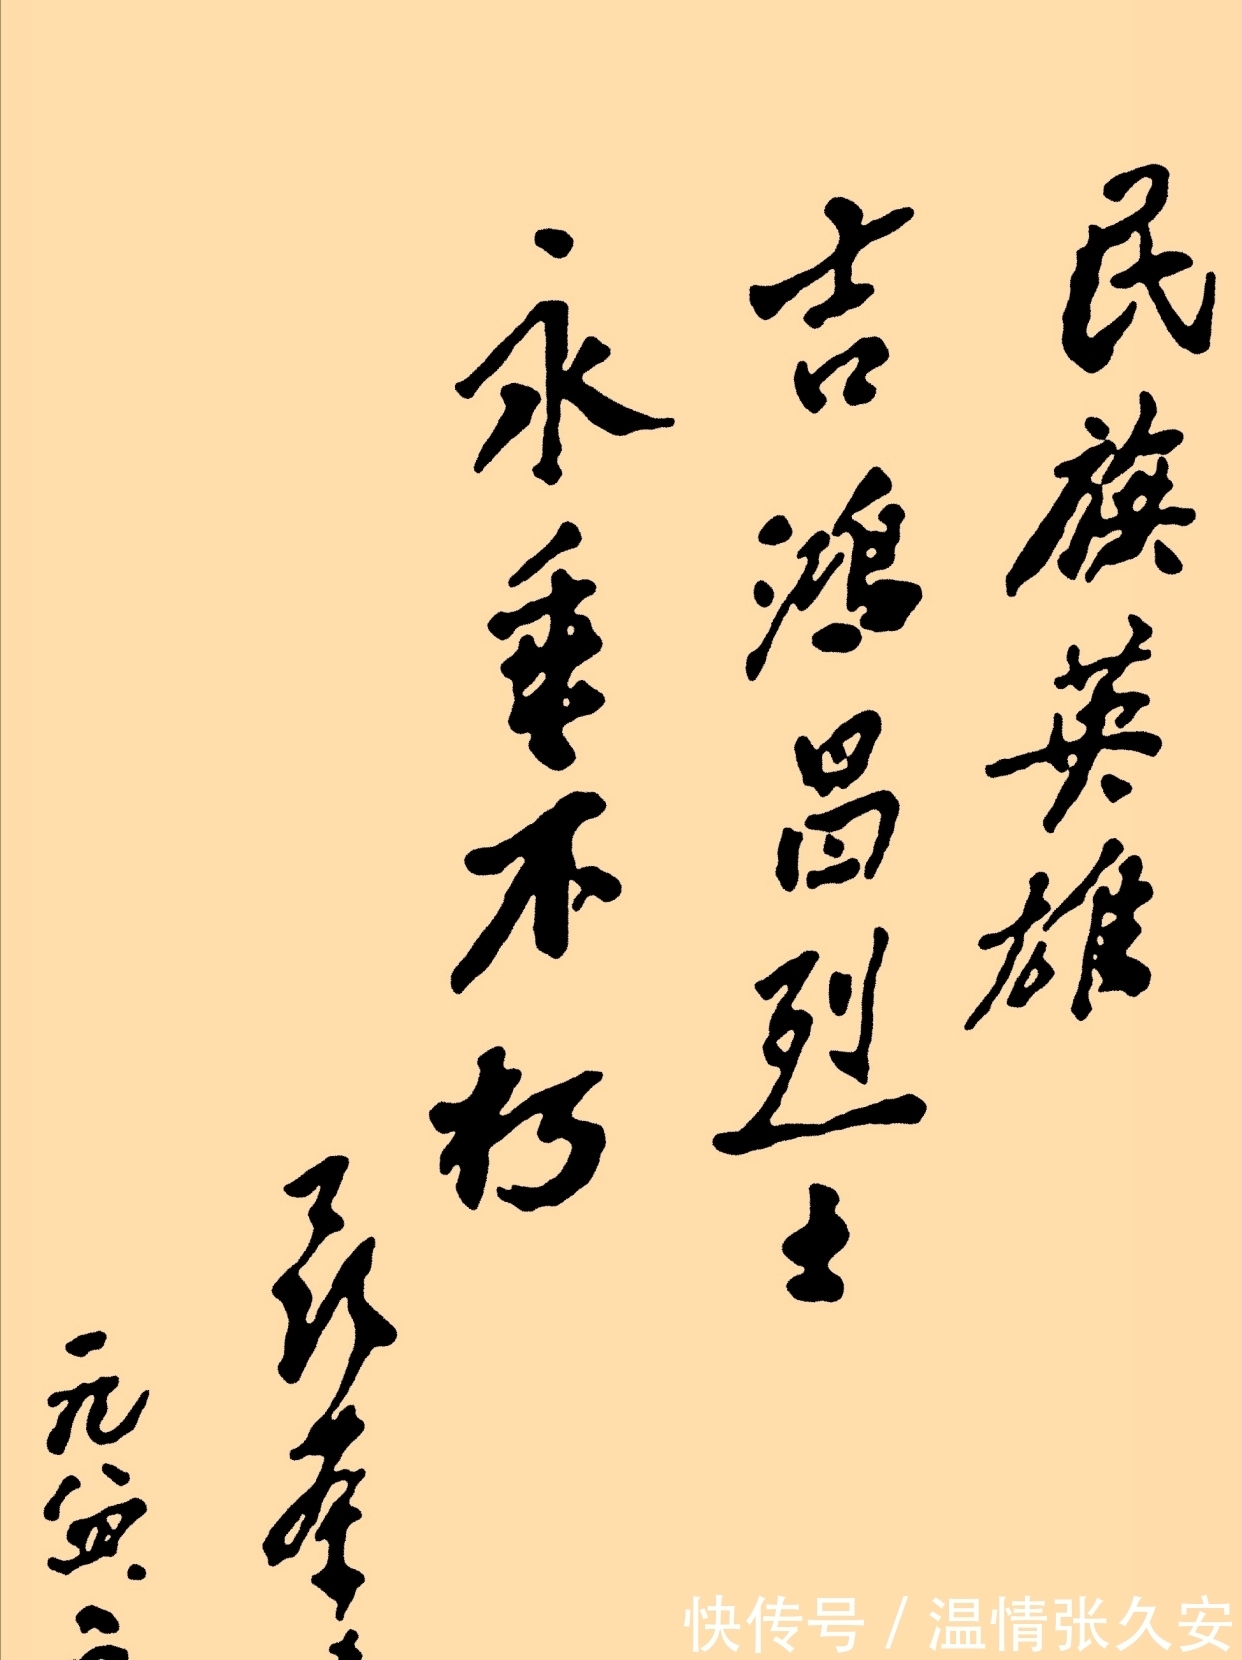 民族英雄
吉鸿昌烈士
永垂不朽
聂荣
快传号／温情张久安